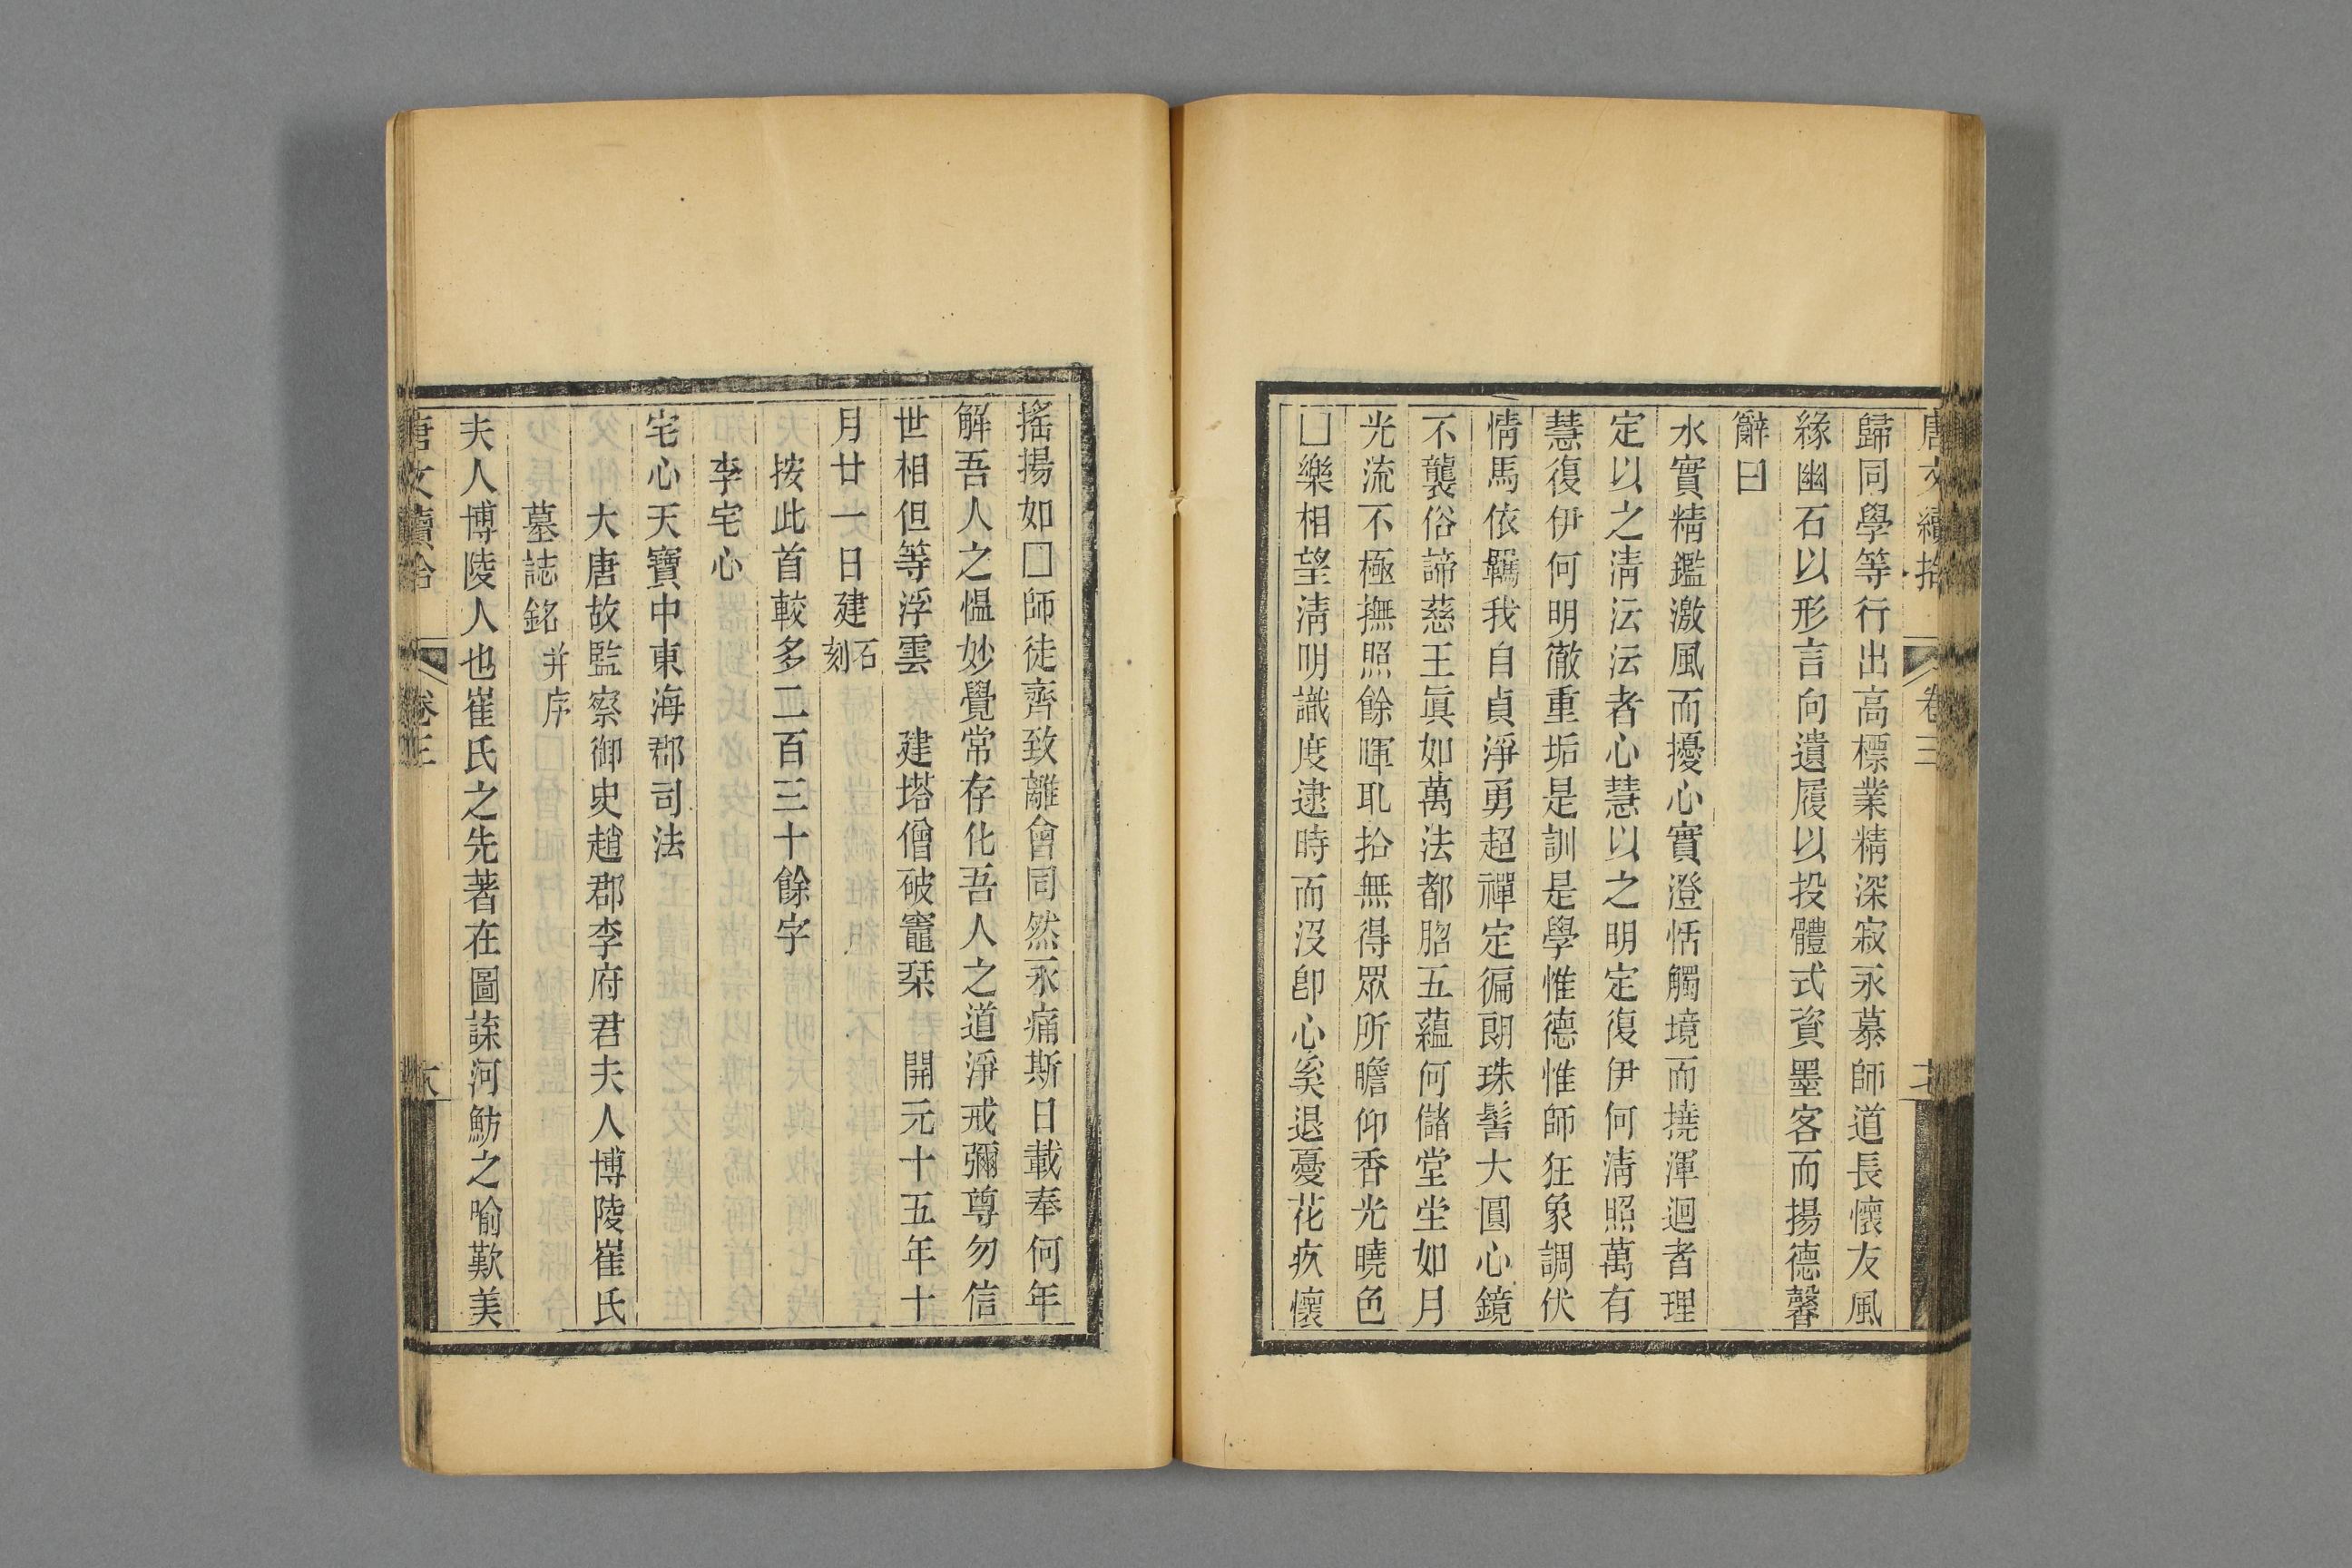 唐文續拾 卷三
歸同學等行出高標業精深寂永慕師道長懷友風
緣幽石以形言向遺履以投體式資墨客而揚德馨
辭曰
水實精鑑激風而擾心實澄恬觸境而撓渾迴者理
定以之淸沄沄者心慧以之明定復伊何淸照萬有
慧復伊何明徹重垢是訓是學惟德惟師狂象調伏
情馬依羈我自貞淨勇超禪定徧朗珠髻大圓心鏡
不襲俗諦慈王眞如萬法都䏮五蘊何儲堂堂如月
光流不極撫照餘暉耴拾無得眾所瞻仰香光曉色
□樂相望淸明識度逮時而沒卽心奚退憂花疚懷
搖揚如□師徒齊致離會同然永痛斯日載奉何年
解吾人之慍妙覺常存化吾人之道淨戒彌尊勿信
世相但等浮雲 建塔僧破竈栞 開元十五年十
月廿一日建石刻
按此首較多二百三十餘字
李宅心
宅心天寶中東海郡司法
大唐故監察御史趙郡李府君夫人博陵崔氏
墓誌銘并序
夫人博陵人也崔氏之先著在圖諜河魴之喻歎美
唐文續拾 卷三